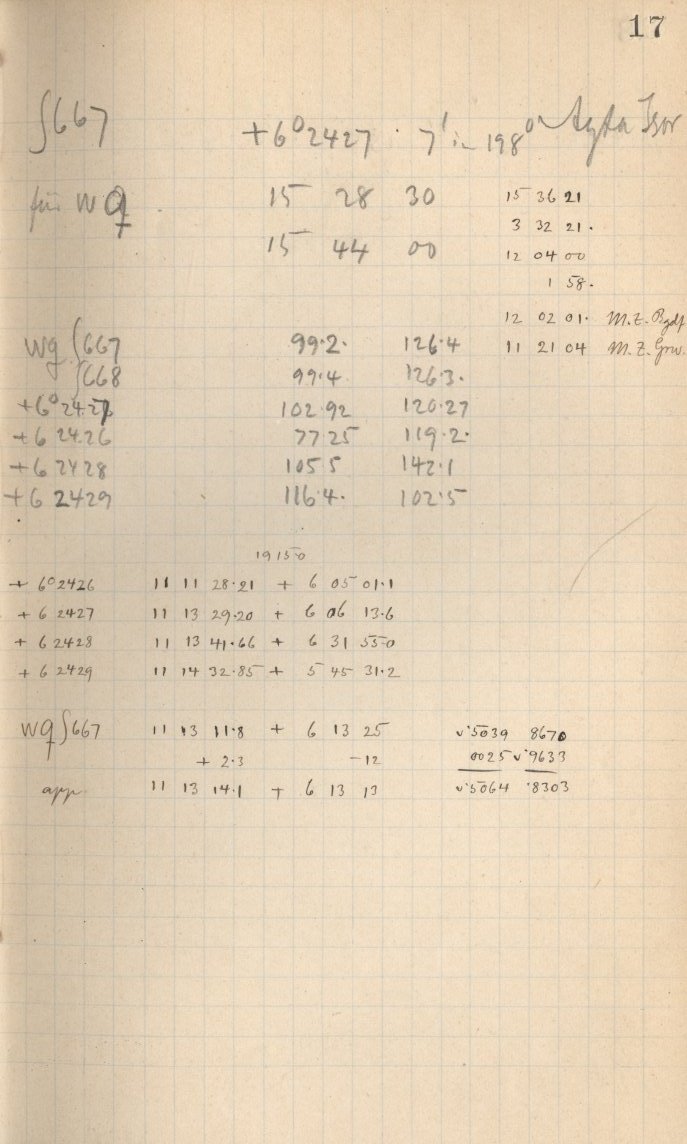 17
∫667 +6° 2427 · 7' in 198°
für wq 15 28 30
15 44 00
15 36 21
3 32 21.
12 04 00
1 58.
12 02 01. M.Z.
11 21 04 M.Z. Grw.
wq ∫667 99.2. 126.4
∫668 99.4 126.3.
+6° 24.27 102.92 120.27
+6 24.26 77.25 119.2.
+6 2428 105.5 142.1
+6 2429 116.4. 102.5
1915.0
+ 6° 2426 11 11 28.21 + 6 05 01.1
+ 6 2427 11 13 29.20 + 6 06 13.6
+ 6 2428 11 13 41.66 + 6 31 55.0
+ 6 2429 11 14 32.85 + 5 45 31.2
wq ∫667 11 13 11.8 + 6 13 25 5039 8670
+ 2.3 -12 0025 9633
app. 11 13 14.1 + 6 13 13 5064 .8303